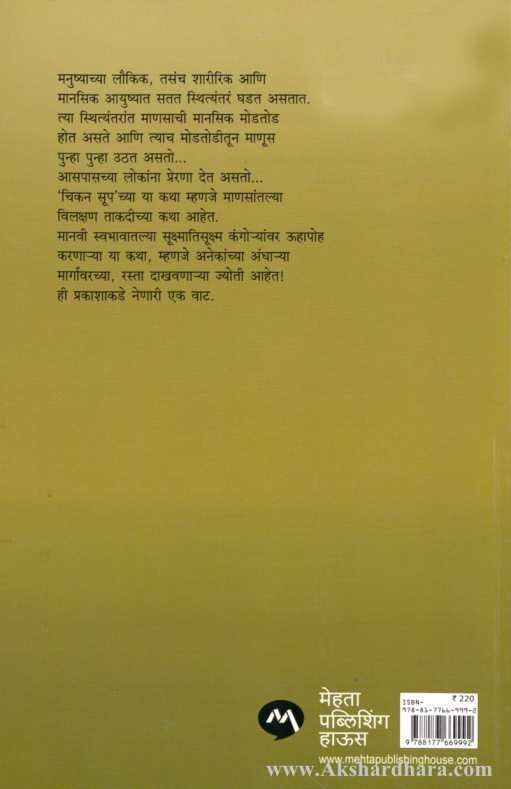 मनुष्याच्या लौकिक, तसंच शारीरिक आणि
मानसिक आयुष्यात सतत स्थित्यंतरं घडत असतात.
त्या स्थित्यंतरांत माणसाची मानसिक मोडतोड
होत असते आणि त्याच मोडतोडीतून माणूस
पुन्हा पुन्हा उठत असतो...
आसपासच्या लोकांना प्रेरणा देत असतो...
'चिकन सूप'च्या या कथा म्हणजे माणसांतल्या
विलक्षण ताकदीच्या कथा आहेत.
मानवी स्वभावातल्या सूक्ष्मातिसूक्ष्म कंगोऱ्यांवर ऊहापोह
करणाऱ्या या कथा, म्हणजे अनेकांच्या अंधाऱ्या
मार्गावरच्या, रस्ता दाखवणाऱ्या ज्योती आहेत!
ही प्रकाशाकडे नेणारी एक वाट.
मेहता
पब्लिशिंग
हाऊस
www.mehtapublishinghouse.com
₹ 220
ISBN-
978-81-7766-999-2
9 788177 669992
www.Akshardhara.com